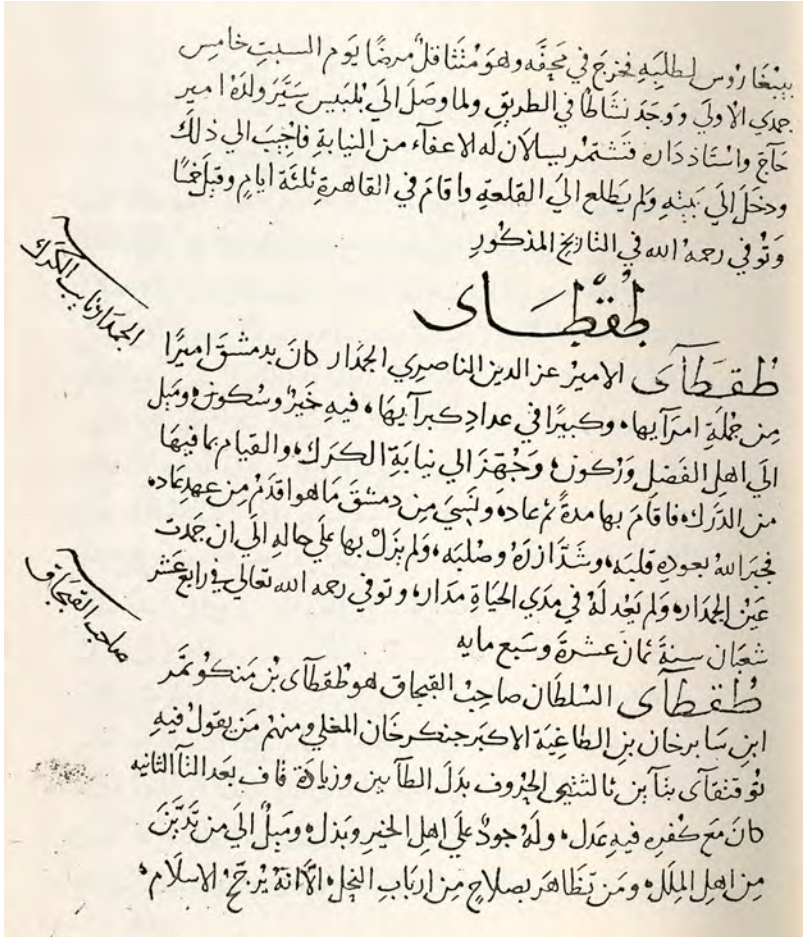 بيبغاروس لطلبه فخرج في محفه وهو متثاقل مرضا يوم السبت خامس
جمدي الاولي ووجد نشاطا في الطريق ولما وصل الي بلبيس سير ولده امير
حاج واستاذ داره قشتمر يسالان له الاعفاء من النيابة فاجيب الي ذلك
ودخل الي بيته ولم يطلع الي القلعة واقام في القاهرة ثلثة ايام وقيل خمسا
وتوفي رحمه الله في التاريخ المذكور
طقطاى
الجمدار نايب الكرك
طقطاى الامير عز الدين الناصري الجمدار كان بدمشق اميرا
من جملة امرآيها، وكبيرا في عداد كبرآيها، فيه خير وسكون، وميل
الي اهل الفضل وركون، وجهز الي نيابة الكرك، والقيام بما فيها
من الدرك، فاقام بها مدة ثم عاد، ونسي من دمشق ما هو اقدم من عهد عاد،
فجبر الله بعوده قلبه، وشد ازره وصلبه، ولم يزل بها علي حاله الي ان جمدت
عين الجمدار، ولم يعد له في مدي الحياة مدار، وتوفي رحمه الله تعالي في رابع عشر
شعبان سنة ثمان عشرة وسبع مايه
صاحب القبجاق
طقطاى السلطان صاحب القبجاق هو طقطاى بن منكوتمر
ابن سابرخان بن الطاغية الاكبر جنكرخان المغلي ومنهم من يقول فيه
توقتقاى بتآين ثالثتي الحروف بدل الطآين وزيادة قاف بعد التآ الثانيه
كان مع كفره فيه عدل، وله جود علي اهل الخير وبذل، وميل الي من تدين
من اهل الملل، ومن تظاهر بصلاح من ارباب النحل، الا انه يرجح الاسلام،